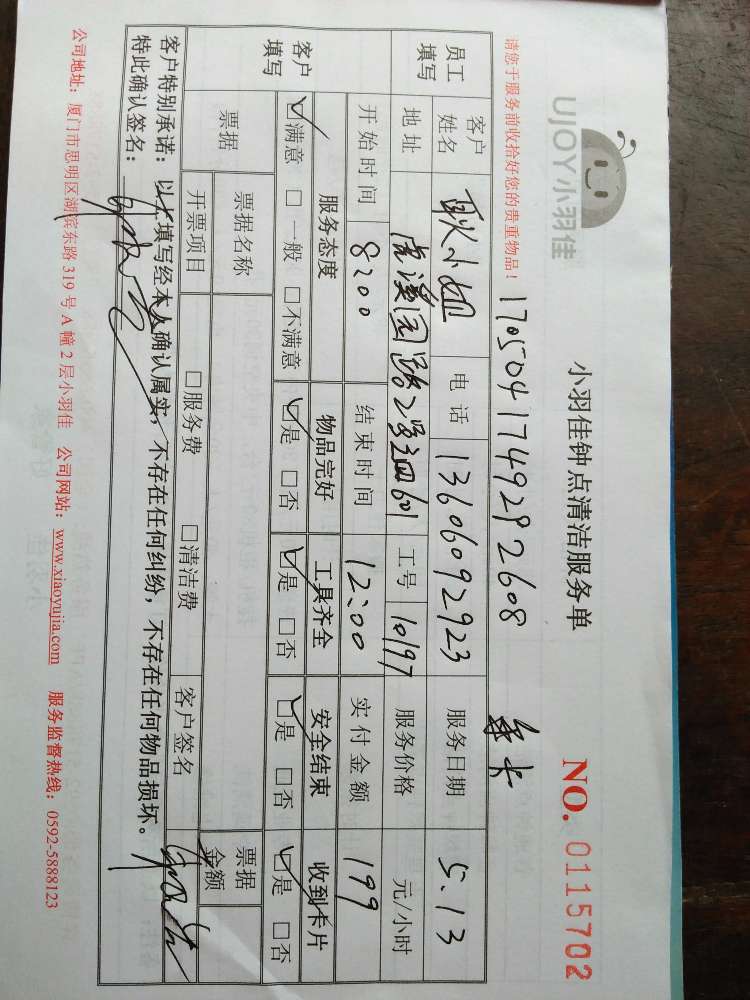 UJOY小羽佳
小羽佳钟点清洁服务单
NO. 0115702
请您于服务前收拾好您的贵重物品!
17050417492 92608
年卡
员工填写
客户姓名 耿小姐 电话 13606092923 服务日期 5.13
地址 虎溪园路2号 601 工号 10197 服务价格 元/小时
开始时间 8:00 结束时间 12:00 实付金额 199
客户填写
服务态度 物品完好 工具齐全 安全结束 收到卡片
☑满意 □一般 □不满意 ☑是 □否 ☑是 □否 ☑是 □否 ☑是 □否
票据 票据名称 票据金额
开票项目 □服务费 □清洁费 客户签名
客户特别承诺:以上填写经本人确认属实,不存在任何纠纷,不存在任何物品损坏。
特此确认签名:
公司地址:厦门市思明区湖滨东路319号A幢2层小羽佳 公司网站:www.xiaoyujia.com 服务监督热线:0592-5888123